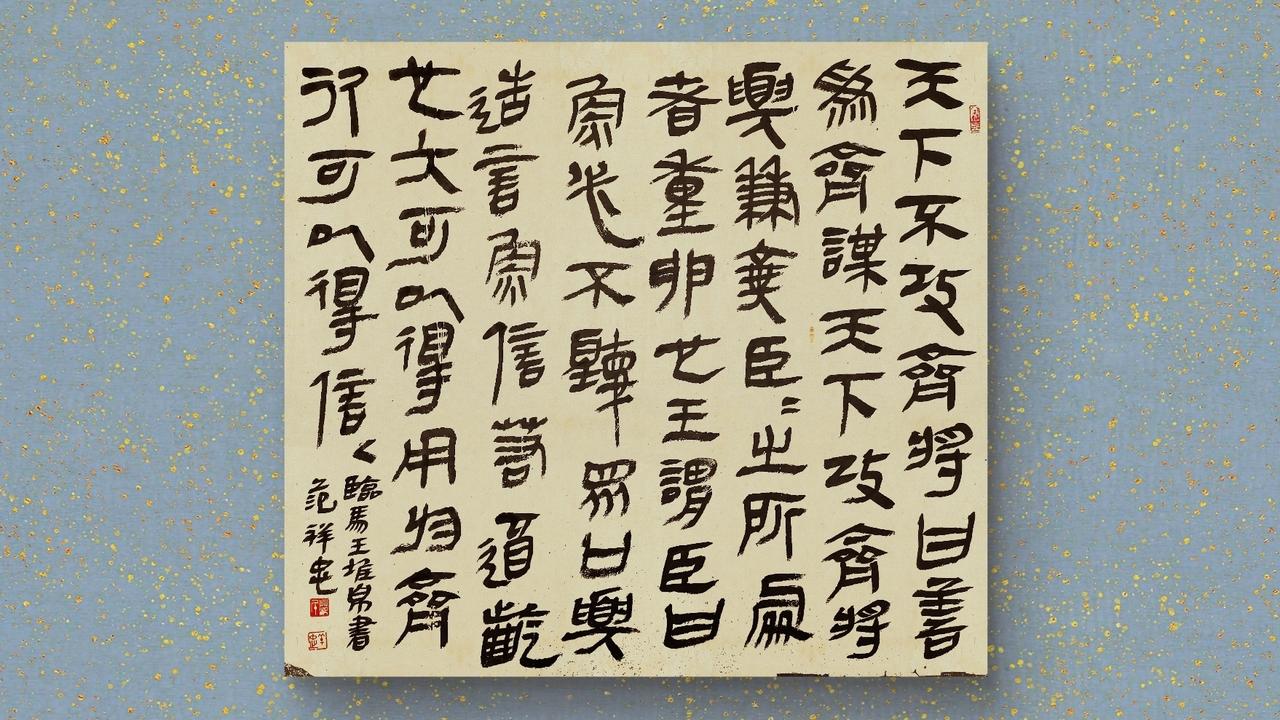 天下不攻齊將曰善
為齊謀天下攻齊將
與兼棄臣〻之所處
者重卵也王謂臣曰
魚必不聽眾口與
造言魚信若遒齕
也大可以得用於齊
次可以得信
臨馬王堆帛書
范祥忠